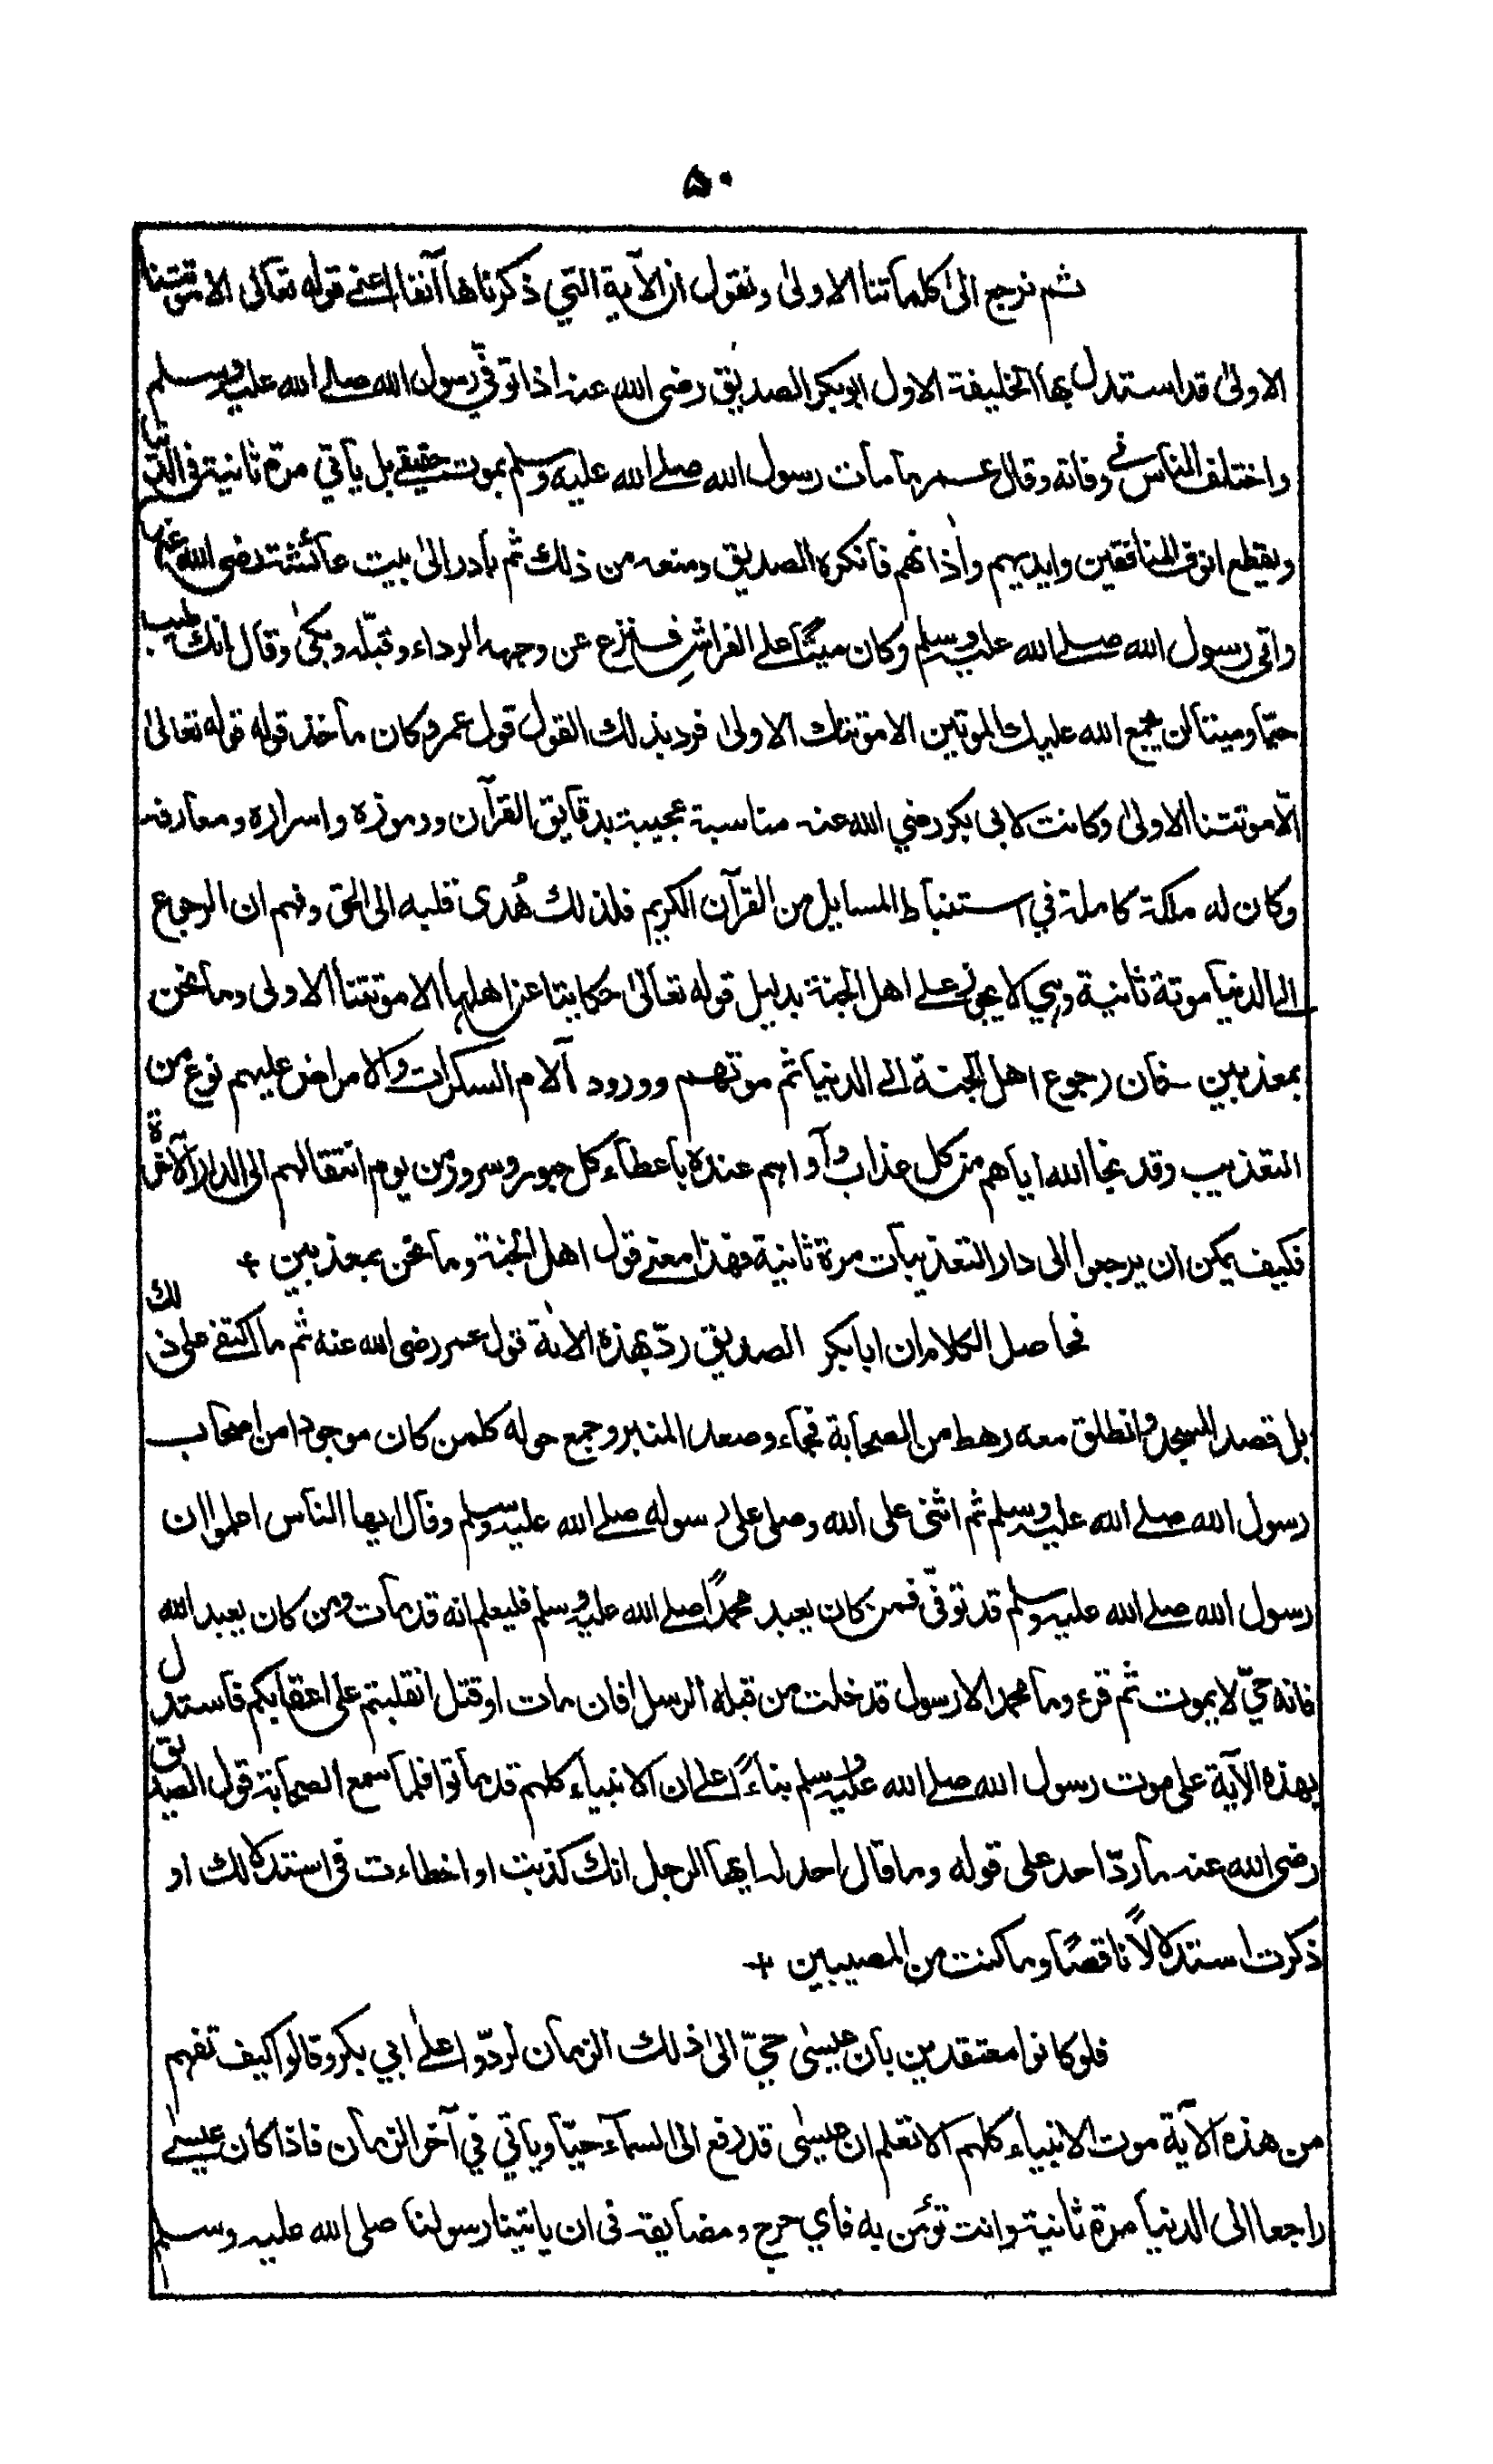 ۵۰
ثم نرجع الى كلماتنا الاولىٰ ونقول ان الآية التي ذكرناها آنفا اعنے قوله تعالى الا موتتنا
الاولىٰ قد استدل بها الخليفة الاول ابوبكر الصديق رضى الله عنه اذا توفّي رسول الله صلے الله عليه وسلم
واختلف الناس فے وفاته وقال عمر ما مات رسول الله صلے الله عليه وسلم بموت حقيقے بل يأتي مرّة ثانية فى الدنيا
ويقطع انوف المنافقين وايديهم واٰذانهم فانكره الصديق ومنعه من ذلك ثم بادر الىٰ بيت عائشة رضى الله عنها
واتى رسول الله صلے الله عليه وسلم وكان ميتًا على الفراش فنزع عن وجهه الرداء وقبّله وبكىٰ وقال انك طيب
حيّا وميتا لن يجمع الله عليك الموتين الا موتتك الاولىٰ فرد بذلك القول قول عمر وكان مأخذ قوله قوله تعالىٰ
الّا موتتنا الاولىٰ وكانت لابى بكر رضي الله عنه مناسبة عجيبة بدقايق القرآن ورموزه واسراره ومعارفه
وكان له ملكة كاملة في استنباط المسايل من القرآن الكريم فلذلك هُدى قلبه الى الحق وفهم ان الرجوع
الى الدنيا موتة ثانية وهي لا يجوز علے اهل الجنة بدليل قوله تعالىٰ حكايتا عن اهلها الا موتتنا الاولى وما نحن
بمعذبين فان رجوع اهل الجنة الے الدنيا ثم موتهم وورود آلام السكرات والامراض عليهم نوع من
التعذيب وقد نجا الله اياهم من كل عذاب وآواهم عنده باعطاء كل حبور وسرور من يوم انتقالهم الى الدار الآخرة
فكيف يمكن ان يرجعوا الى دار التعذيبات مرة ثانية فهذا معنے قول اهل الجنة وما نحن بمعذبين +
فحاصل الكلام ان ابابكر الصديق ردّ بهذه الاية قول عمر رضى الله عنه ثم ما اكتفے على ذلك
بل قصد المسجد وانطلق معه رهط من الصحابة فجاء وصعد المنبر وجمع حوله كلمن كان موجودا من اصحاب
رسول الله صلے الله عليه وسلم ثم اثنى على الله وصلى على رسوله صلے الله عليه وسلم وقال ايها الناس اعلموا ان
رسول الله صلے الله عليه وسلم قد توفّى فمن كان يعبد محمدًا صلے الله عليه وسلم فليعلم انه قد مات ومن كان يعبد الله
فانه حيّ لا يموت ثم قرء وما محمد الا رسول قد خلت من قبله الرسل افان مات او قتل انقلبتم على اعقابكم فاستدل
بهذه الآية على موت رسول الله صلے الله عليه وسلم بناءً اعلے ان الانبياء كلهم قد ماتوا فلما سمع الصحابة قول الصديق
رضى الله عنه ما ردّ احد على قوله وما قال احد له ايها الرجل انك كذبت او اخطاءت فى استدلالك او
ذكرت استدلالاً ناقصًا وما كنت من المصيبين +
فلو كانوا معتقدين بان عيسٰى حيّ الىٰ ذلك الزمان لردّوا علےٰ ابي بكر وقالوا كيف تفهم
من هذه الآية موت الانبياء كلهم الا تعلم ان عيسٰى قد رفع الى السماء حيّا وياتي في آخر الزمان فاذا كان عيسٰے
راجعا الى الدنيا مرة ثانية وانت تؤمن به فاي حرج ومضايقة فى ان ياتينا رسولنا صلى الله عليه وسلم